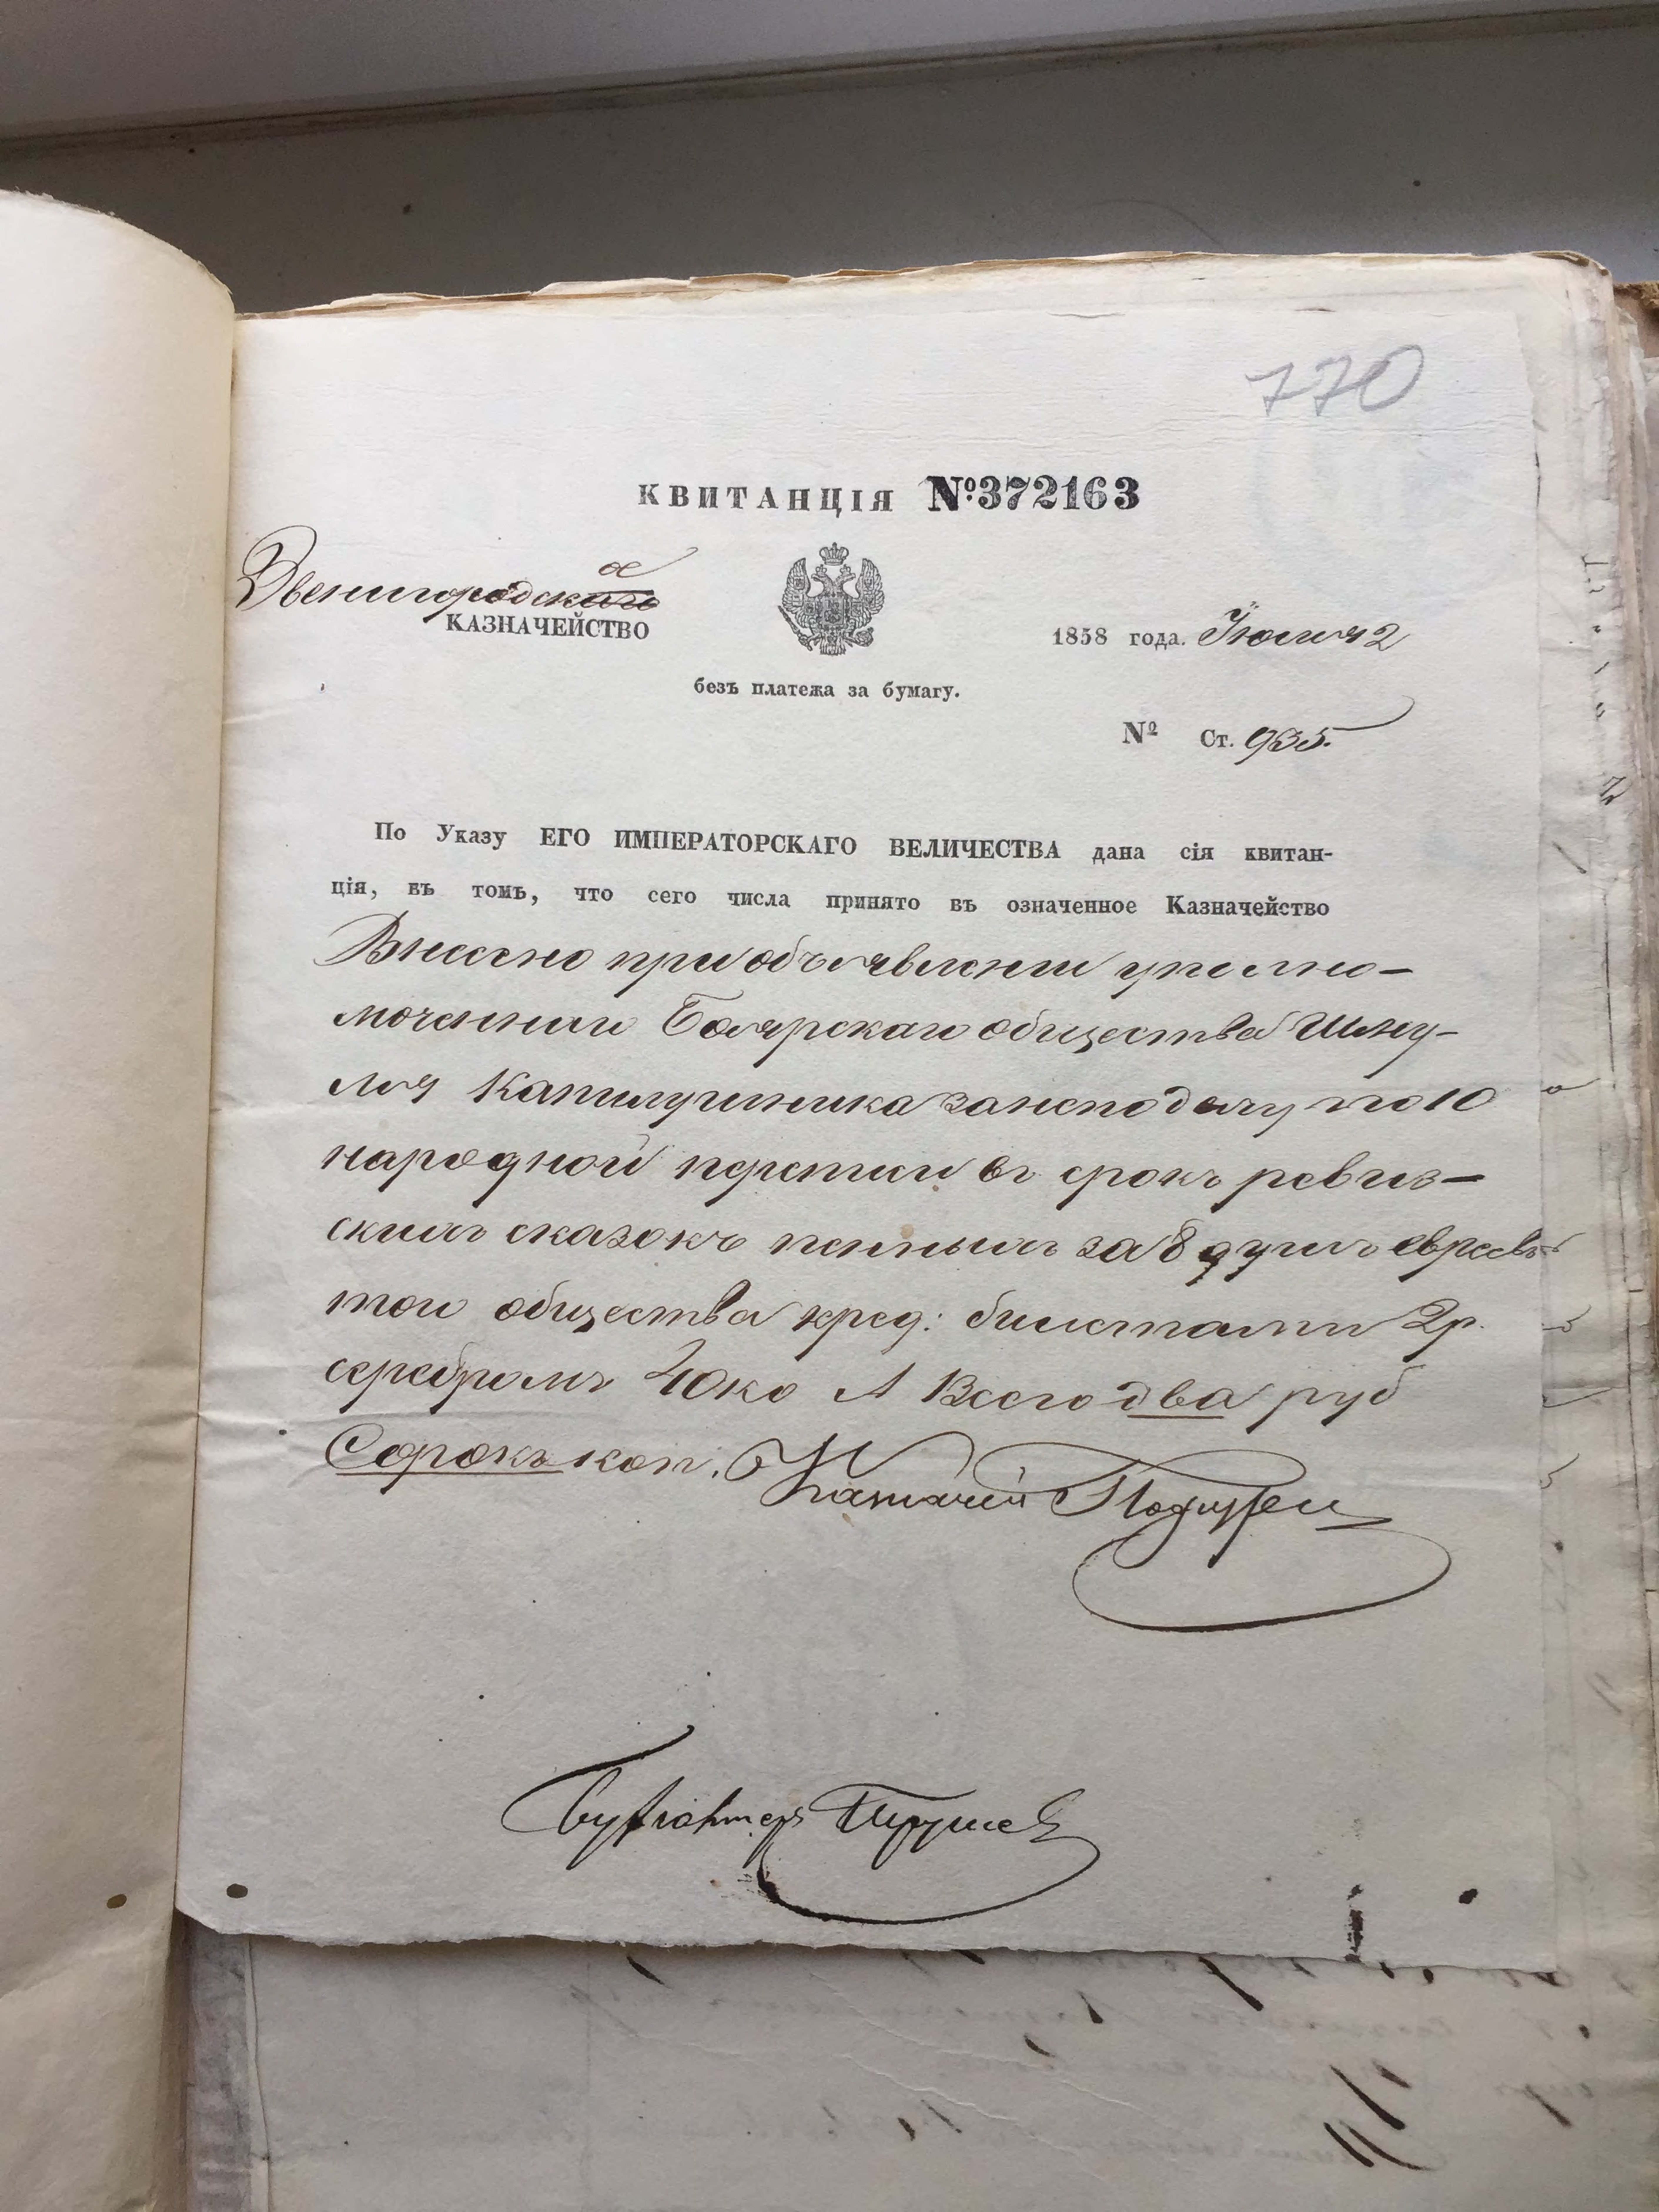 770
КВИТАНЦІЯ №372163
Звенигородское
КАЗНАЧЕЙСТВО
1858 года. Іюля 2
безъ платежа за бумагу.
№ Ст. 935.
По Указу ЕГО ИМПЕРАТОРСКАГО ВЕЛИЧЕСТВА дана сія квитан-
ція, въ томъ, что сего числа принято въ означенное Казначейство
Внесено при объявленіи уполно-
моченнии Боярскаго общества Шму-
ля занеподачу по 10
народной переписи въ срокъ ревиз-
скихъ сказокъ пенныхъ за 8 душъ евреевъ
того общества кред: билетами 2р.
серебромъ 40ко А Всего два руб
Сорокъ коп.
Казначей
Бухгалтеръ